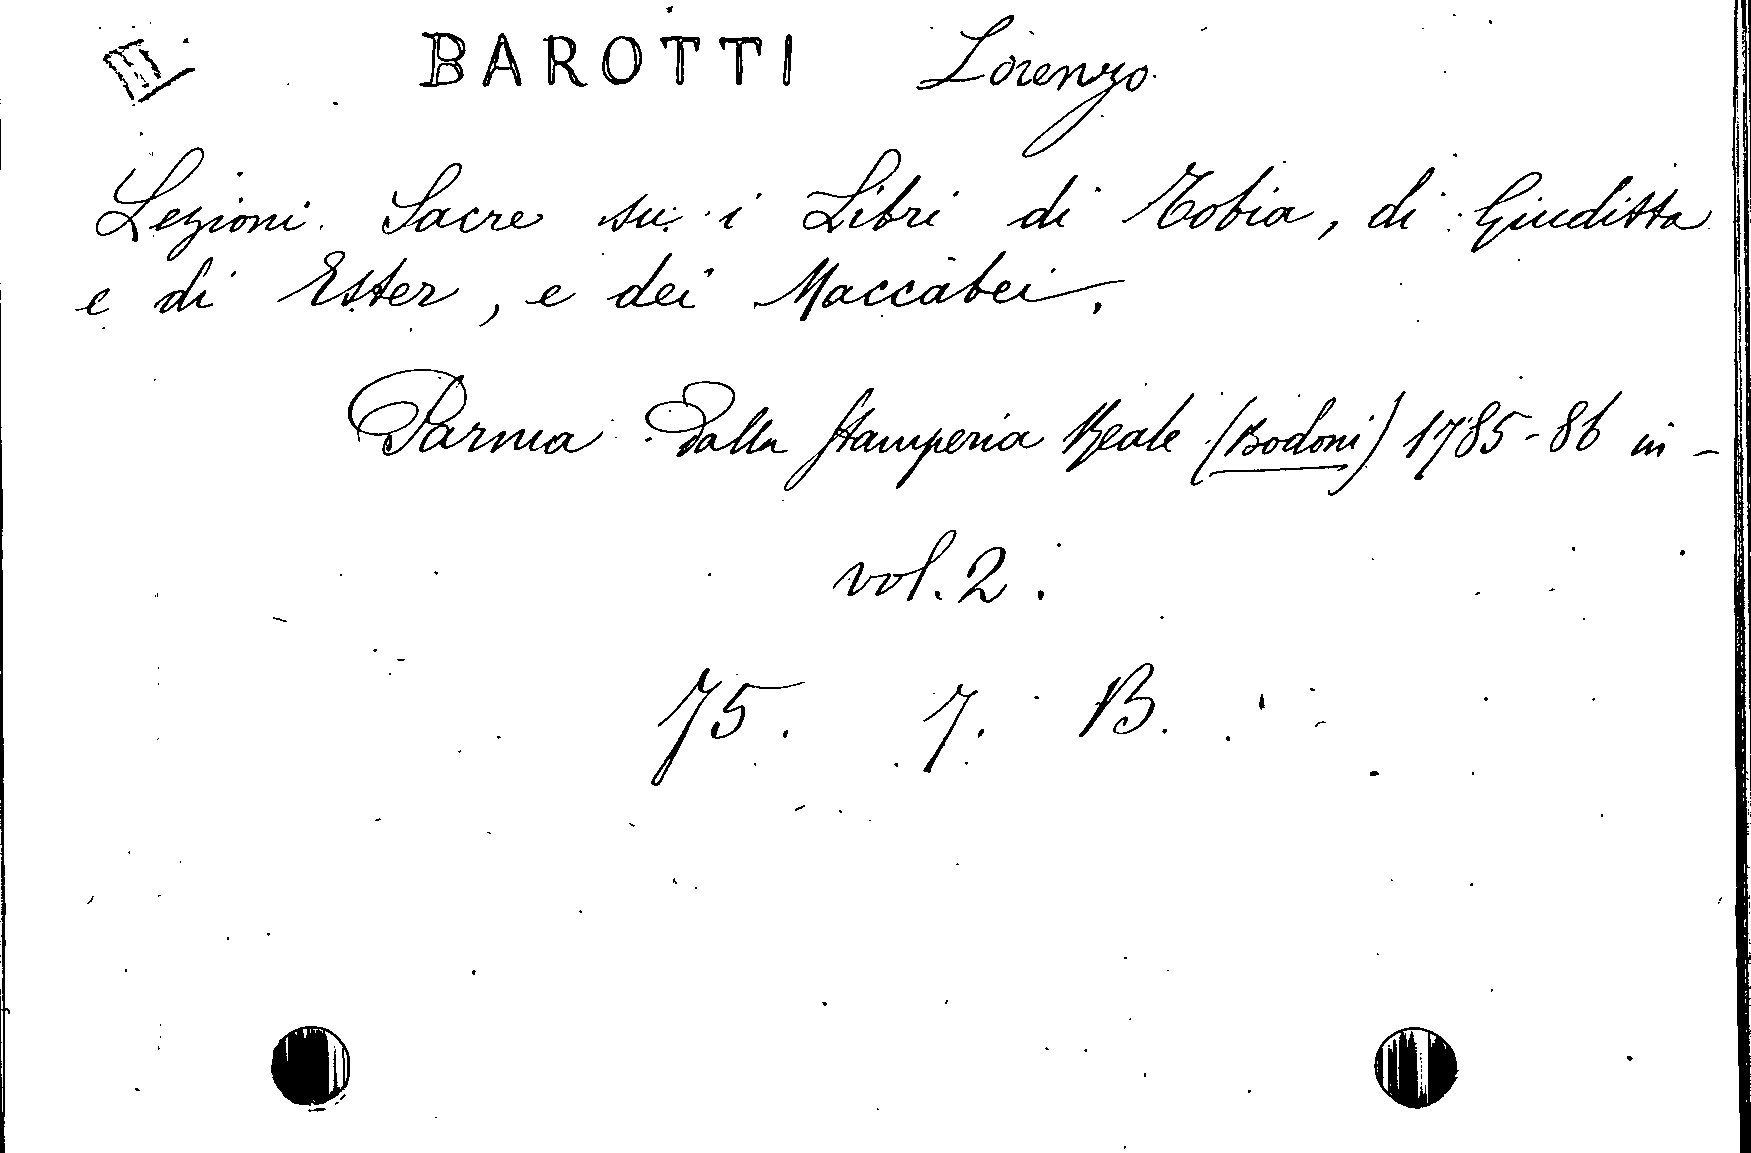 BAROTTI Lorenzo
Lezioni Sacre su i Libri di Tobia, di Giuditta
e di Ester, e dei Maccabei.
Parma Dalla Stamperia Reale (Bodoni) 1785-86 in-
vol. 2.
75. 7. B.